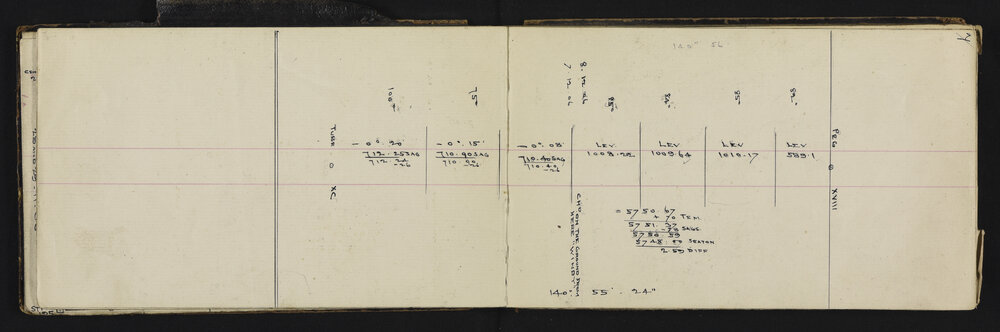 140° 56
4
8. 12. 06
7. 12. 06
100°
75°
85°
84°
85°
89°
TUBE O XC
- 0° 20
712.253 SAG
712.24
-.26
- 0°. 15'
710.90 SAG
710.90
-.26
- 0°. 08'
710.40 SAG
710.40
-.26
LEV
1008.28
LEV
1009.64
LEV
1010.17
LEV
589.1
PEG O XVIII
CHD ON THE GROUND FROM
HERE
= 5750.67
+.70 TEM.
5751.37
-.78 SAGS
5750.59
5748.00 SEATON
2.59 DIFF
140° 55' 24"